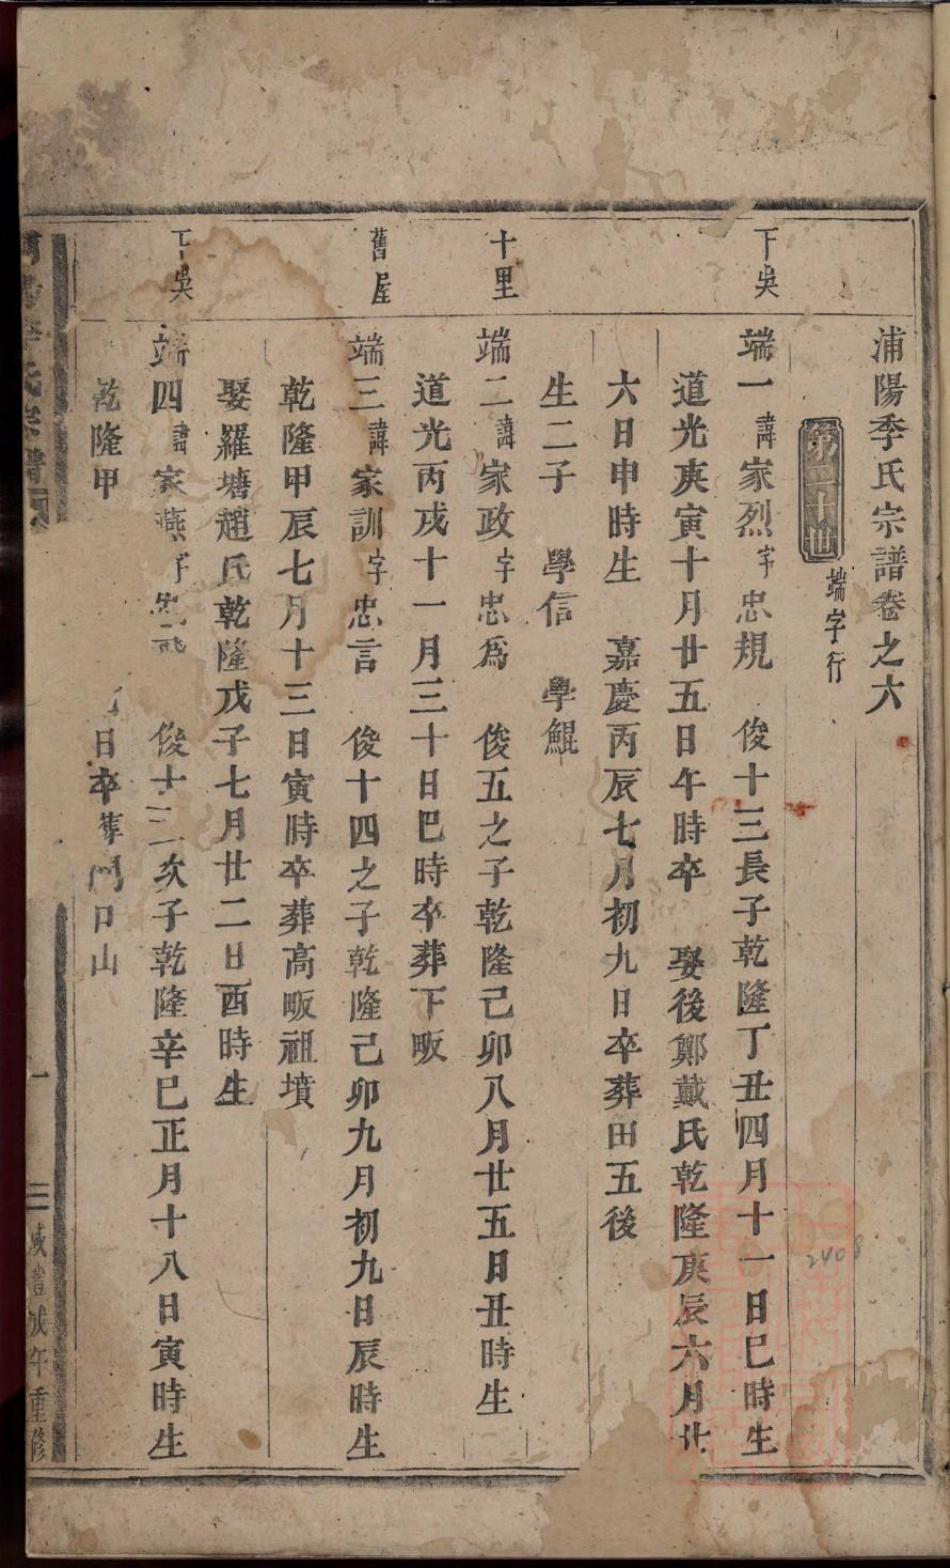 浦陽季氏宗譜卷之六
第二十世 端字行
下吳
端一諱家烈字忠規 俊十三長子乾隆丁丑四月十一日巳時生
道光庚寅十月廿五日午時卒 娶後鄭戴氏乾隆庚辰六月廿
六日申時生 嘉慶丙辰七月初九日卒葬田五後
生二子 學信 學鯤
十里
端二諱家政字忠爲 俊五之子乾隆己卯八月廿五日丑時生
道光丙戌十一月三十日巳時卒葬下畈
舊屋
端三諱家訓字忠言 俊十四之子乾隆己卯九月初九日辰時生
乾隆甲辰七月十三日寅時卒葬高畈祖墳
娶羅塘趙氏乾隆戊子七月廿二日酉時生
下吳
端四諱家燕字忠 俊十三次子乾隆辛巳正月十八日寅時生
乾隆甲 日卒葬門口山
季氏宗譜
一
三 咸豐戊午重修
2408